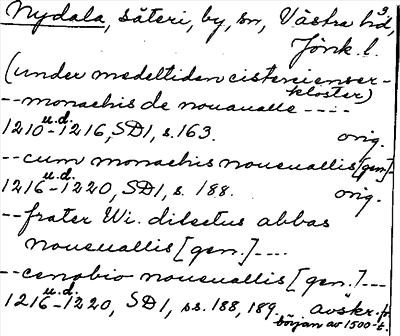 Nydala, säteri, by, sn, Västra hd,
Jönk. l.
(under medeltiden cistercienser-
kloster)
-- monachis de nouaualle ----
u.d.
1210-1216, SD1, s. 163. orig.
-- cum monachis noueuallis [gen.]-
u.d.
1216-1220, SD1, s. 188. orig.
-- frater Wi. dilectus abbas
noueuallis [gen.] ----
-- cenobio noueuallis [gen.] ---
u.d.
1216-1220, SD1, ss. 188, 189. avskr. fr.
början av 1500-t.